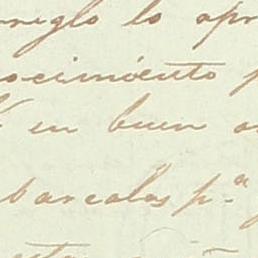 rreglo lo apr
ocimiento p
en buen
barcalos p.ª
esta